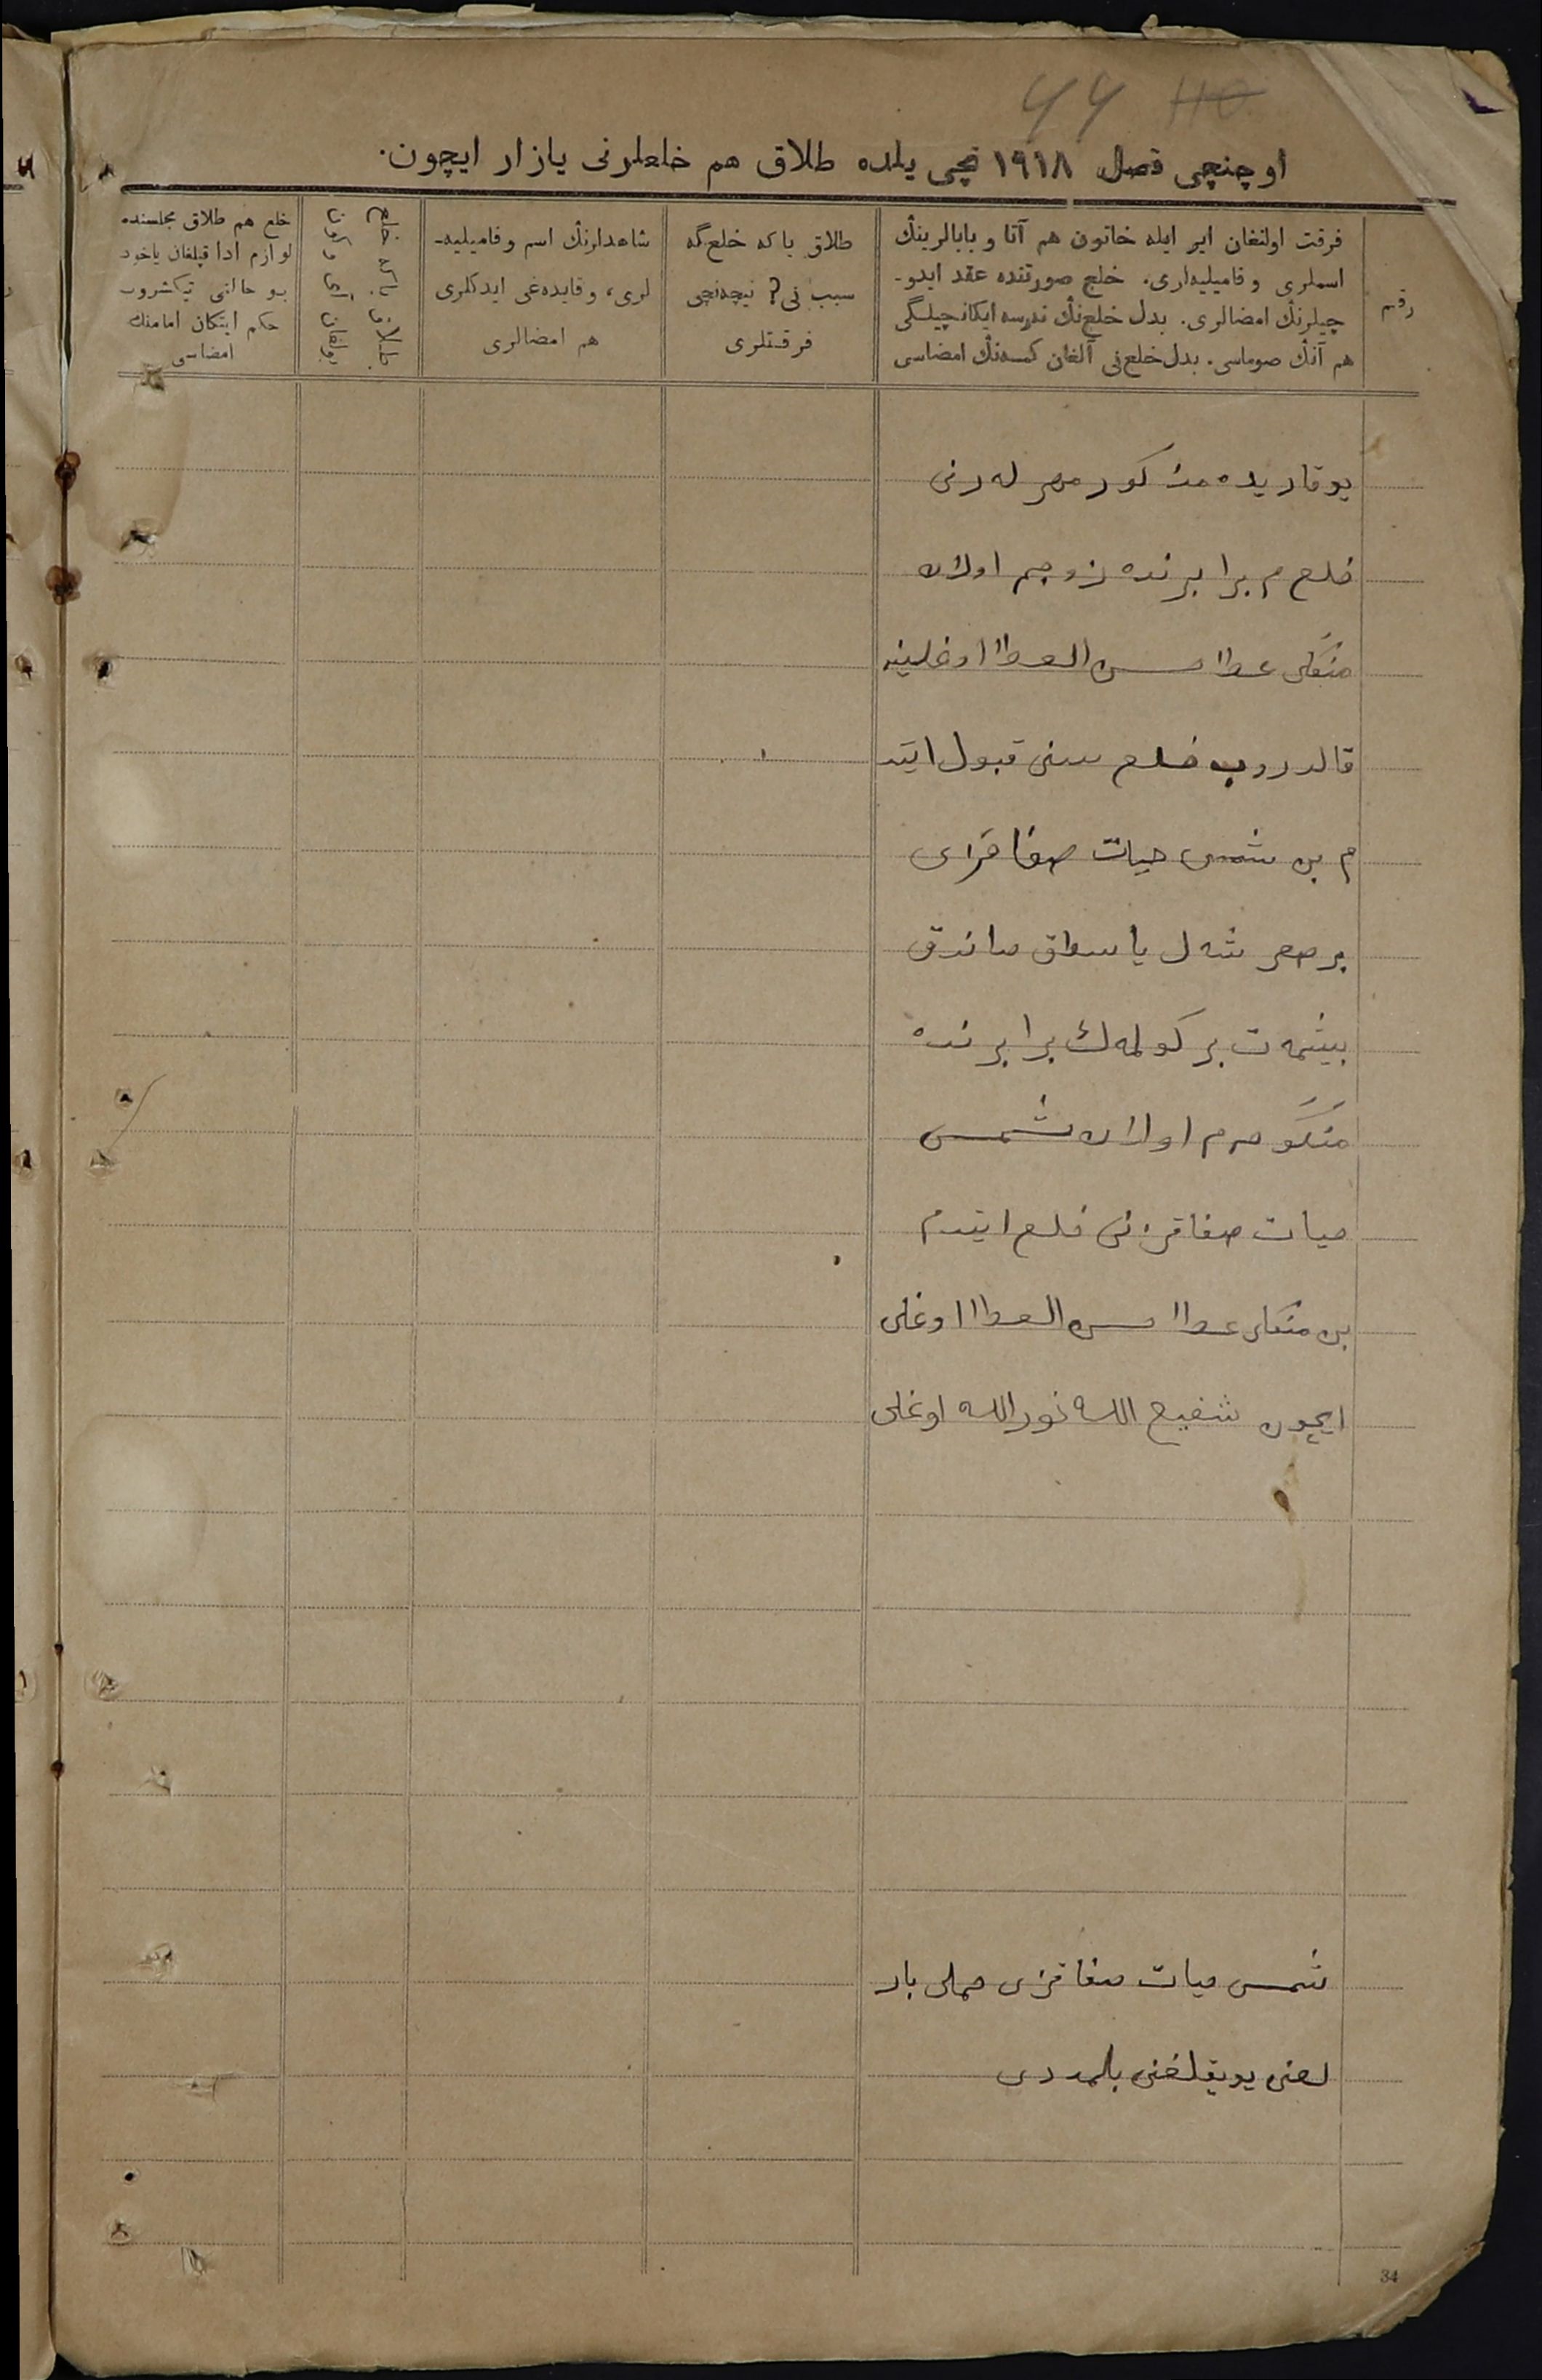 44 110
اوچنچی فصل ١٩١٨ نچی یلده طلاق هم خلعلرنی یازار ایچون.
رقم
فرقت اولنغان ایر ایله خاتون هم آتا و بابالرینڭ
اسملری و فامیلیه‌لری. خلع صورتنده عقد ایدو-
چیلرنڭ امضالری. بدل خلع‌نڭ نەرسه ایکانچیلگی
هم آنڭ صوماسی. بدل خلع‌نی آلغان کمسه‌نڭ امضاسی
طلاق یا که خلع‌گه
سبب نی؟ نیچه‌نچی
فرقتلری
شاهدلرنڭ اسم و فامیلیه-
لری، و قایده‌غی ایدکلری
هم امضالری
طلاق یا که خلع
بولغان آی و کون
خلع هم طلاق مجلسنده
لوازم ادا قیلغان یاخود
بو حالنی تیکشروب
حکم ایتکان امامنڭ
امضاسی
یوقاریده مذکور مهر له رنی
خلعم برابرنده زوجم اولان
منکلی عطا حسن العطا اوغلینه
قالدروب خلع سنی قبول ایتد
م بن شمس حیات صفا قزای
بر شه ل یاسطق صاندق
بیشمه ت بر کولمه ك برابرنده
منکوحه م اولان شمس
حیات صفا قزنی خلع ایتدم
بن منکلی عطا حسن العطا اوغلی
ایچون شفیع الله نورالله اوغلی
شمس حیات صفا قزی حملی بار
لغنی یوقلغنی بلمه دی
34